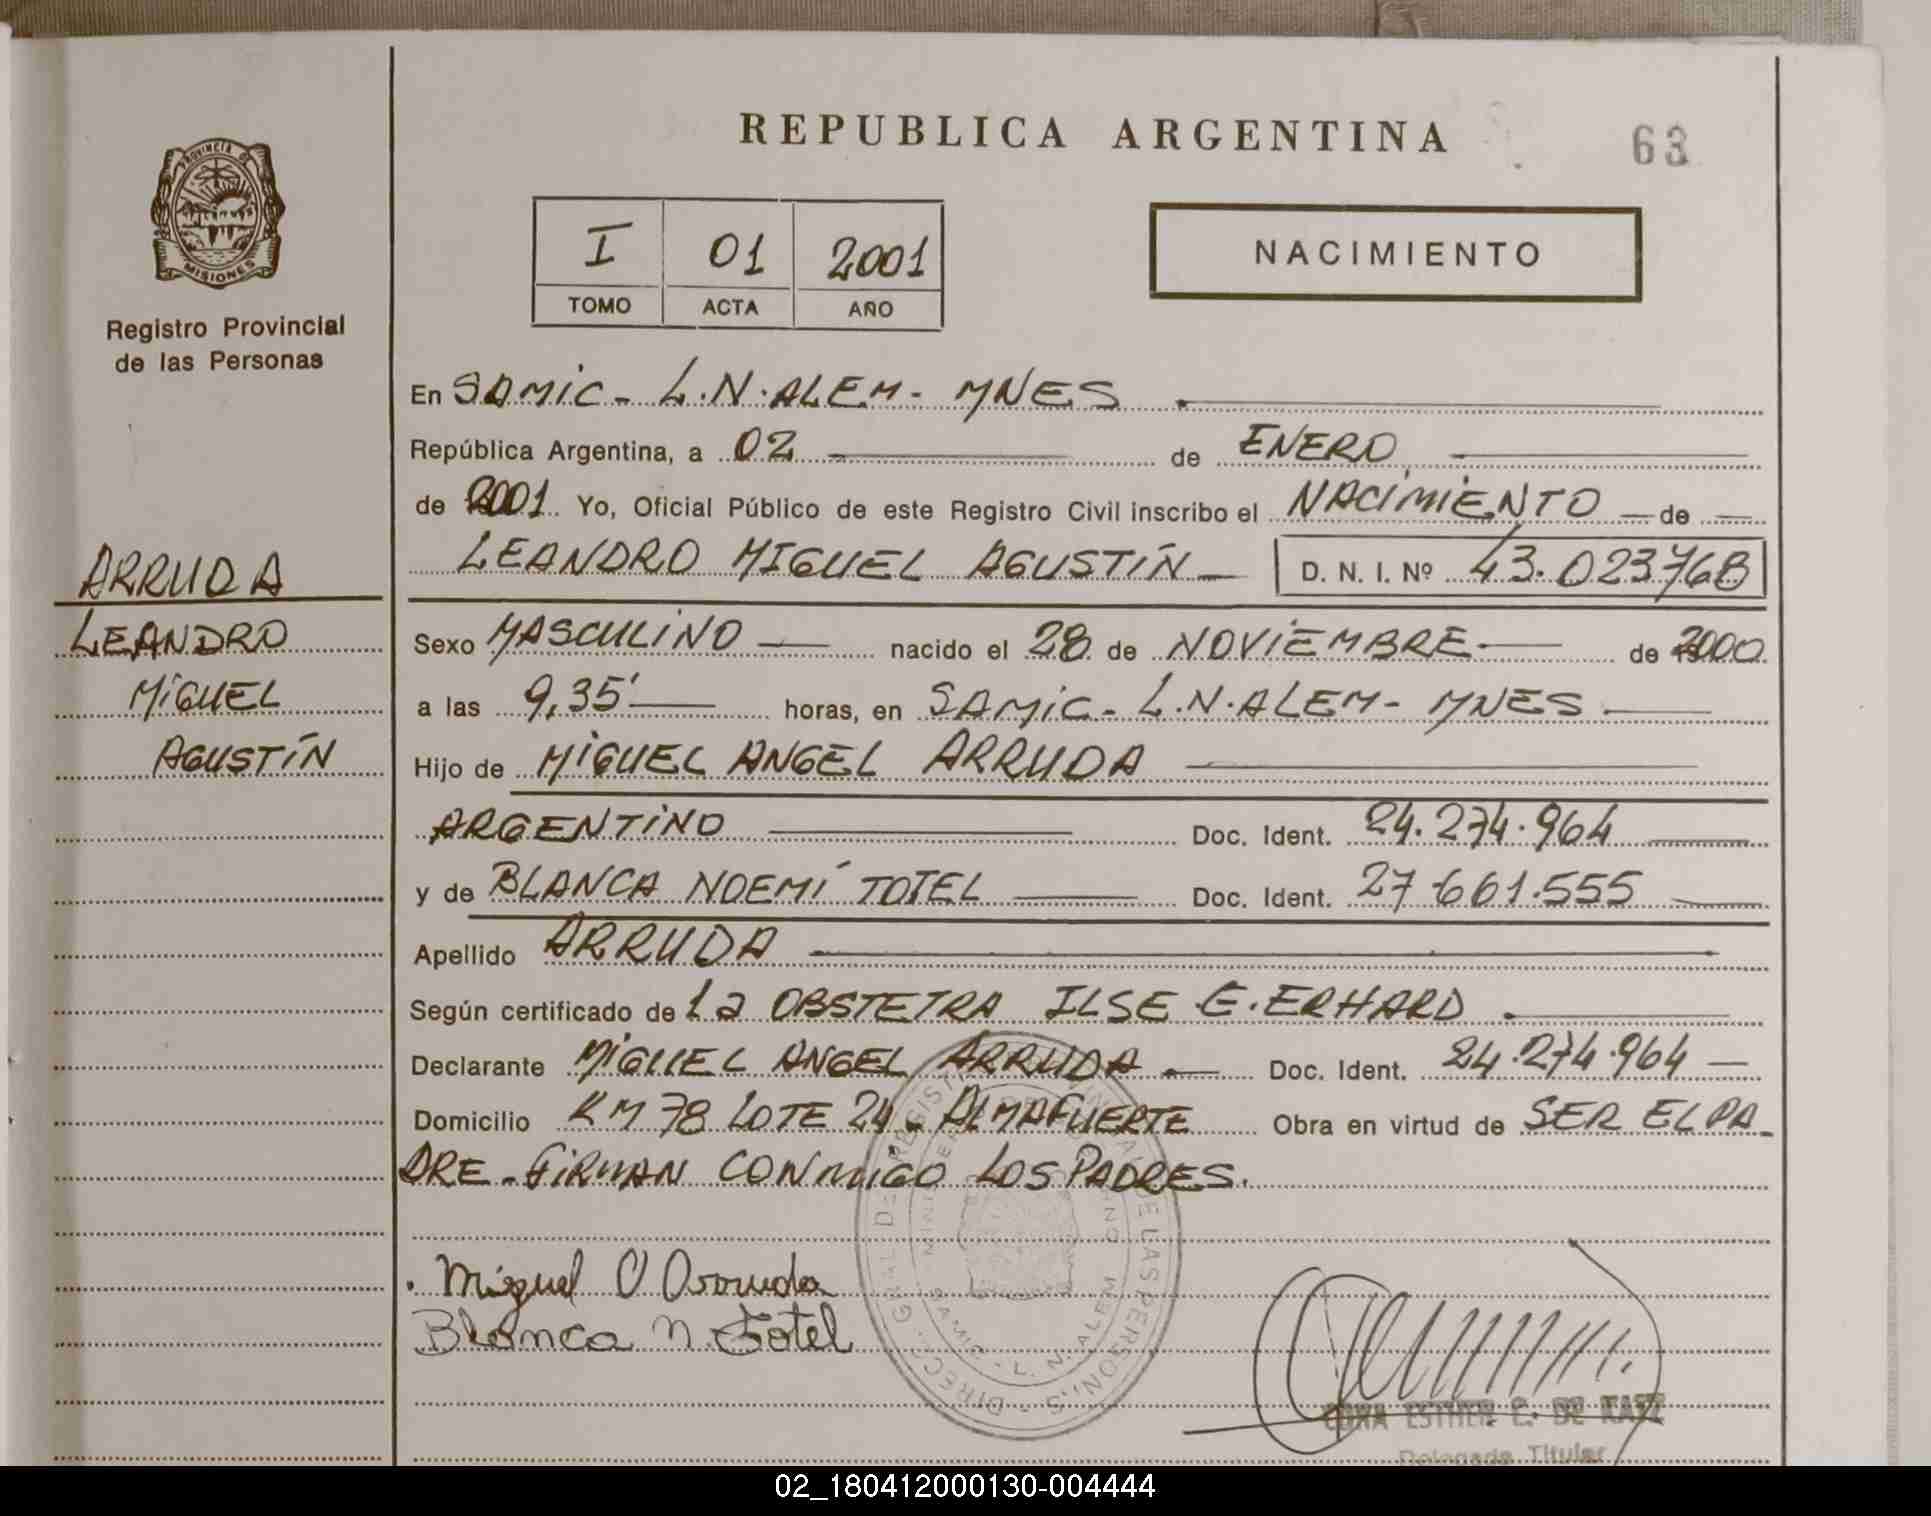 REPUBLICA ARGENTINA
63
PROVINCIA DE
MISIONES
Registro Provincial
de las Personas
I 01 2001
TOMO ACTA AÑO
NACIMIENTO
En SAMIC - L.N. ALEM - MNES
República Argentina, a 02 de ENERO
de 2001 Yo, Oficial Público de este Registro Civil inscribo el NACIMIENTO de
LEANDRO MIGUEL AGUSTÍN D. N. I. Nº 43.023768
ARRUDA
LEANDRO
MIGUEL
AGUSTÍN
Sexo MASCULINO nacido el 28 de NOVIEMBRE de 2000
a las 9,35' horas, en SAMIC - L.N. ALEM - MNES
Hijo de MIGUEL ANGEL ARRUDA
ARGENTINO Doc. Ident. 24.274.964
y de BLANCA NOEMÍ TOTEL Doc. Ident. 27.661.555
Apellido ARRUDA
Según certificado de La OBSTETRA ILSE E. ERHARD
Declarante MIGUEL ANGEL ARRUDA Doc. Ident. 24.274.964
Domicilio KM 78 LOTE 24. ALMAFUERTE Obra en virtud de SER EL PA-
DRE - FIRMAN CONMIGO LOS PADRES.
Miguel A Arruda
Blanca N. Totel
SAMIC - L. N. ALEM
CORA ESTHER C. DE KATZ
Delegada Titular
02_180412000130-004444